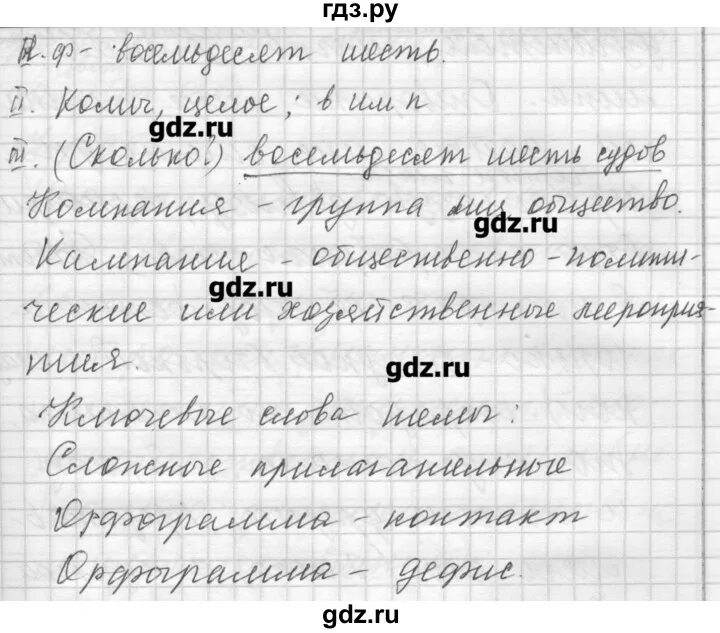 гдз.ру
Н.ф - восемьдесят шесть.
II. Колич, целое; в им п
gdz.ru
III. (Сколько?) восемьдесят шесть судов
Компания - группа лиц общество.
gdz.ru
Кампания - общественно-полити-
gdz.ru
ческие или хозяйственные мероприя-
тия.
gdz.ru
Ключевые слова темы:
Сложные прилагательные
Орфограмма - контакт
Орфограмма - дефис.
gdz.ru